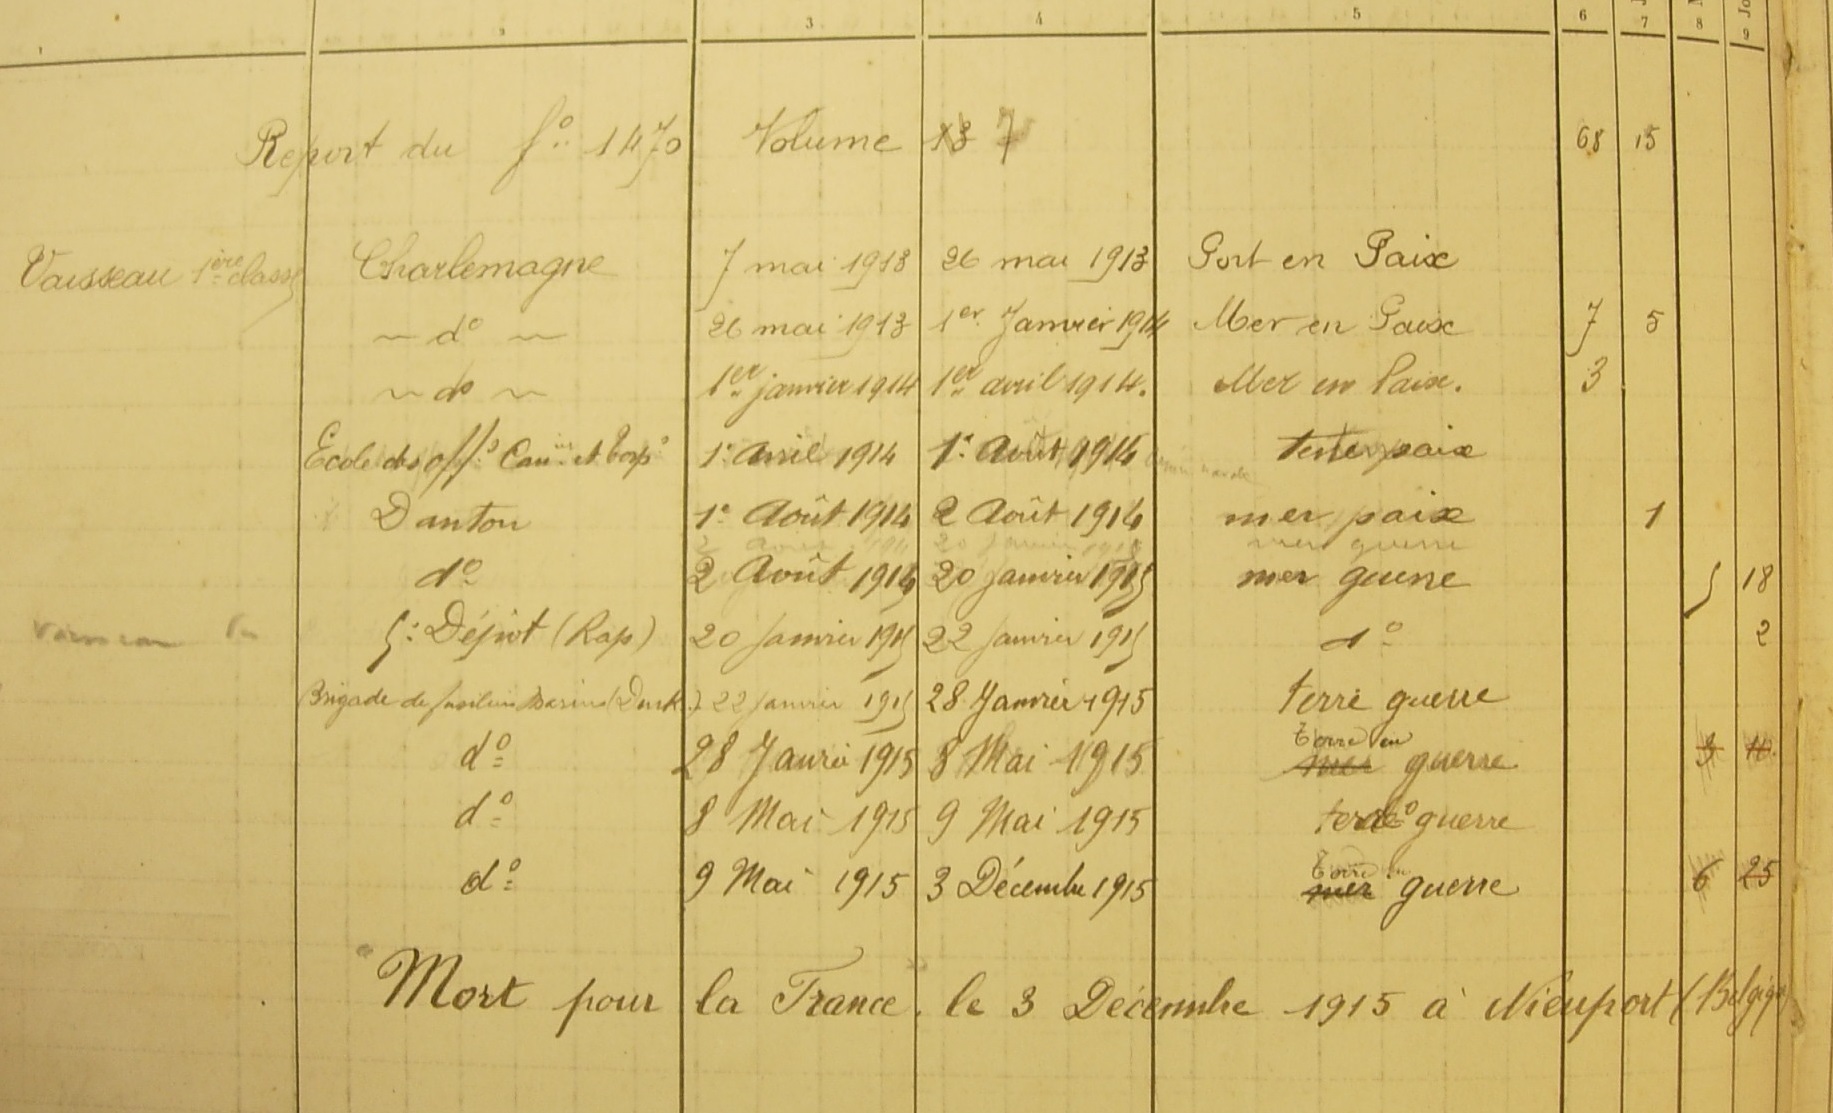 1 2 3 4 5 6 7 8 9
Report du fo 1470 Volume 13 7 68 15
Vaisseau 1ère classe Charlemagne 7 mai 1913 26 mai 1913 Port en Paix
do 26 mai 1913 1er Janvier 1914 Mer en Paix 7 5
do 1er janvier 1914 1er avril 1914. Mer en Paix. 3
Ecole des offrs Canre et Torp 1r Avril 1914 1r Août 1914 terre paix
Danton 1r Août 1914 2 Août 1914 mer paix 1
2 Août 1914 20 Janvier 1915 mer guerre
do 2 Août 1914 20 Janvier 1915 mer guerre 5 18
5e Dépôt (Rap) 20 Janvier 1915 22 Janvier 1915 do 2
Brigade de fusiliers Marins (Dunk.) 22 Janvier 1915 28 Janvier 1915 terre guerre
do 28 Janvier 1915 8 Mai 1915 mer Terre en guerre 3 11
do 8 Mai 1915 9 Mai 1915 do guerre
do 9 Mai 1915 3 Décembre 1915 mer Terre en guerre 6 25
Mort pour la France. le 3 Décembre 1915 à Nieuport (Belgique)